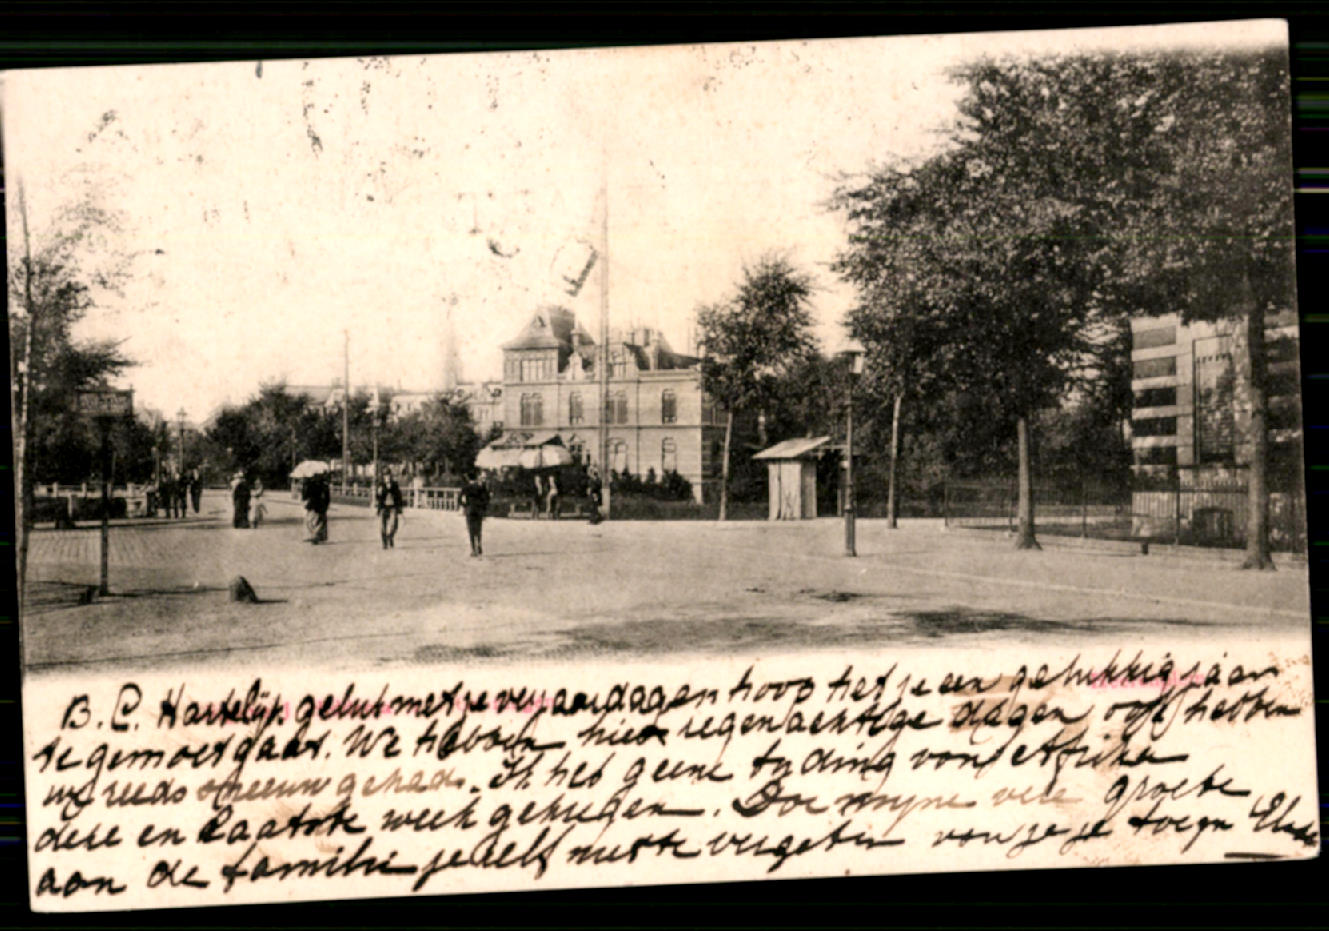 B. C. Hartelijk geluk met je verjaardag en hoop het je een gelukkig jaar
te gemoet gaat. We hebben hier regenachtige dagen, ook hebben
wij reeds sneeuw gehad. Ik heb geene tyding van Afrika
deze en laatste week gekregen. Doe myne vele groete
aan de familie jezelf niet te vergeten van je je toegn